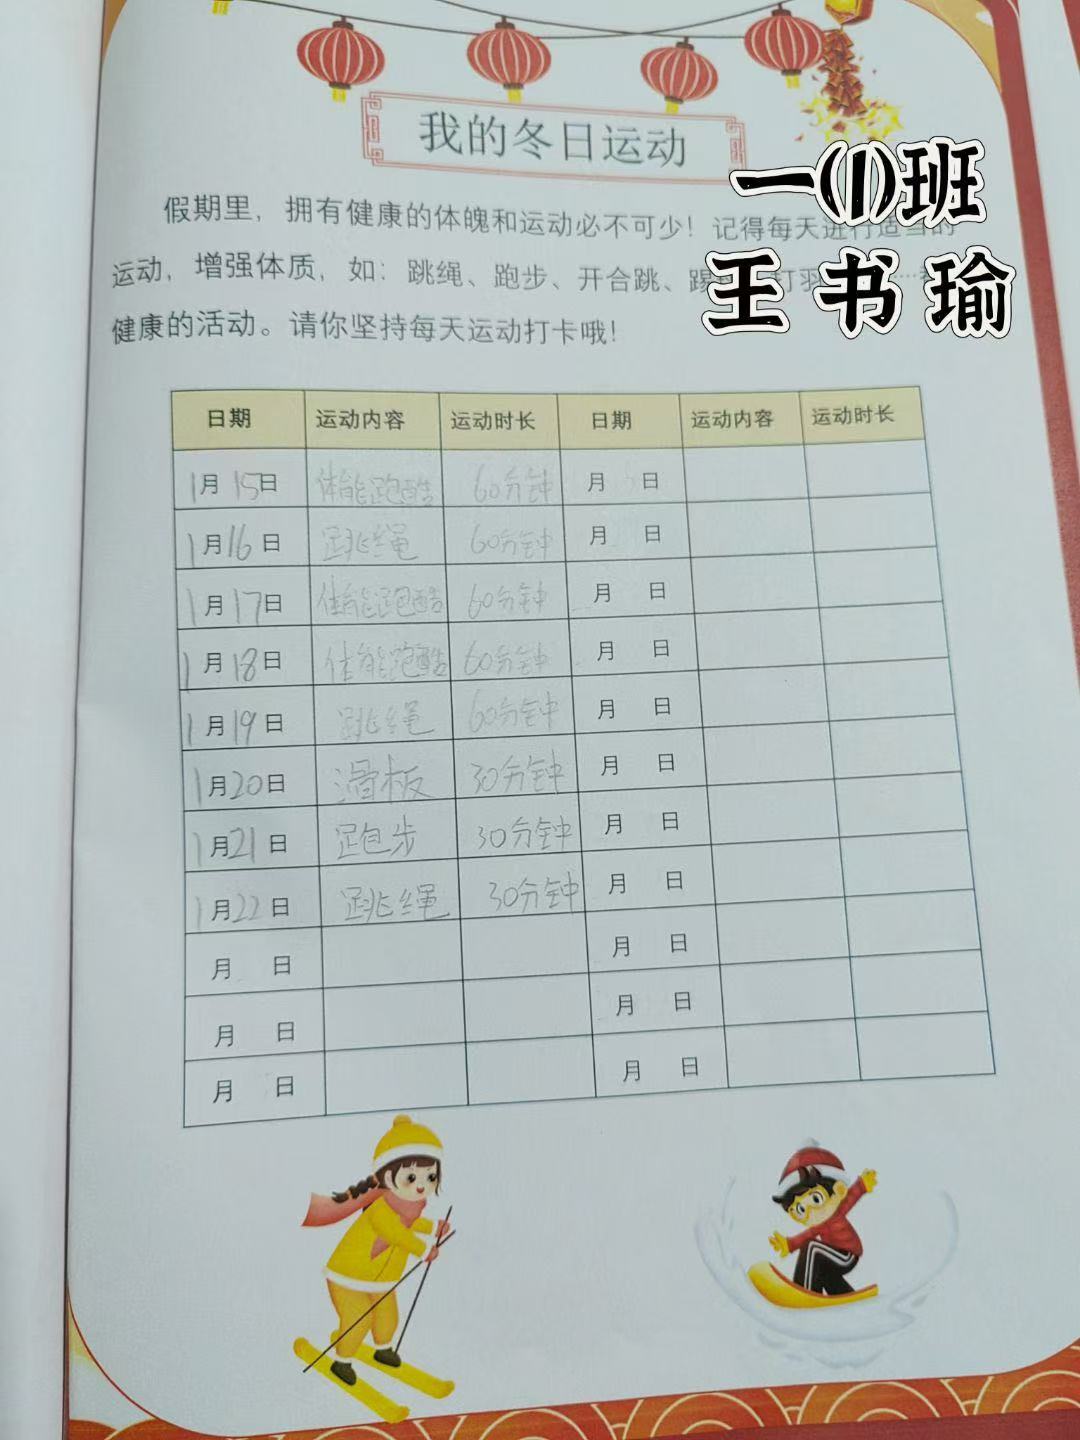 我的冬日运动
一(1)班
王书瑜
假期里，拥有健康的体魄和运动必不可少！记得每天进行适当的
运动，增强体质，如：跳绳、跑步、开合跳、踢 打羽
健康的活动。请你坚持每天运动打卡哦！
日期 运动内容 运动时长 日期 运动内容 运动时长
1月15日 体能跑酷 60分钟 月 日
1月16日 跳绳 60分钟 月 日
1月17日 体能跑酷 60分钟 月 日
1月18日 体能跑酷 60分钟 月 日
1月19日 跳绳 60分钟 月 日
1月20日 滑板 30分钟 月 日
1月21日 跑步 30分钟 月 日
1月22日 跳绳 30分钟 月 日
月 日 月 日
月 日 月 日
月 日 月 日